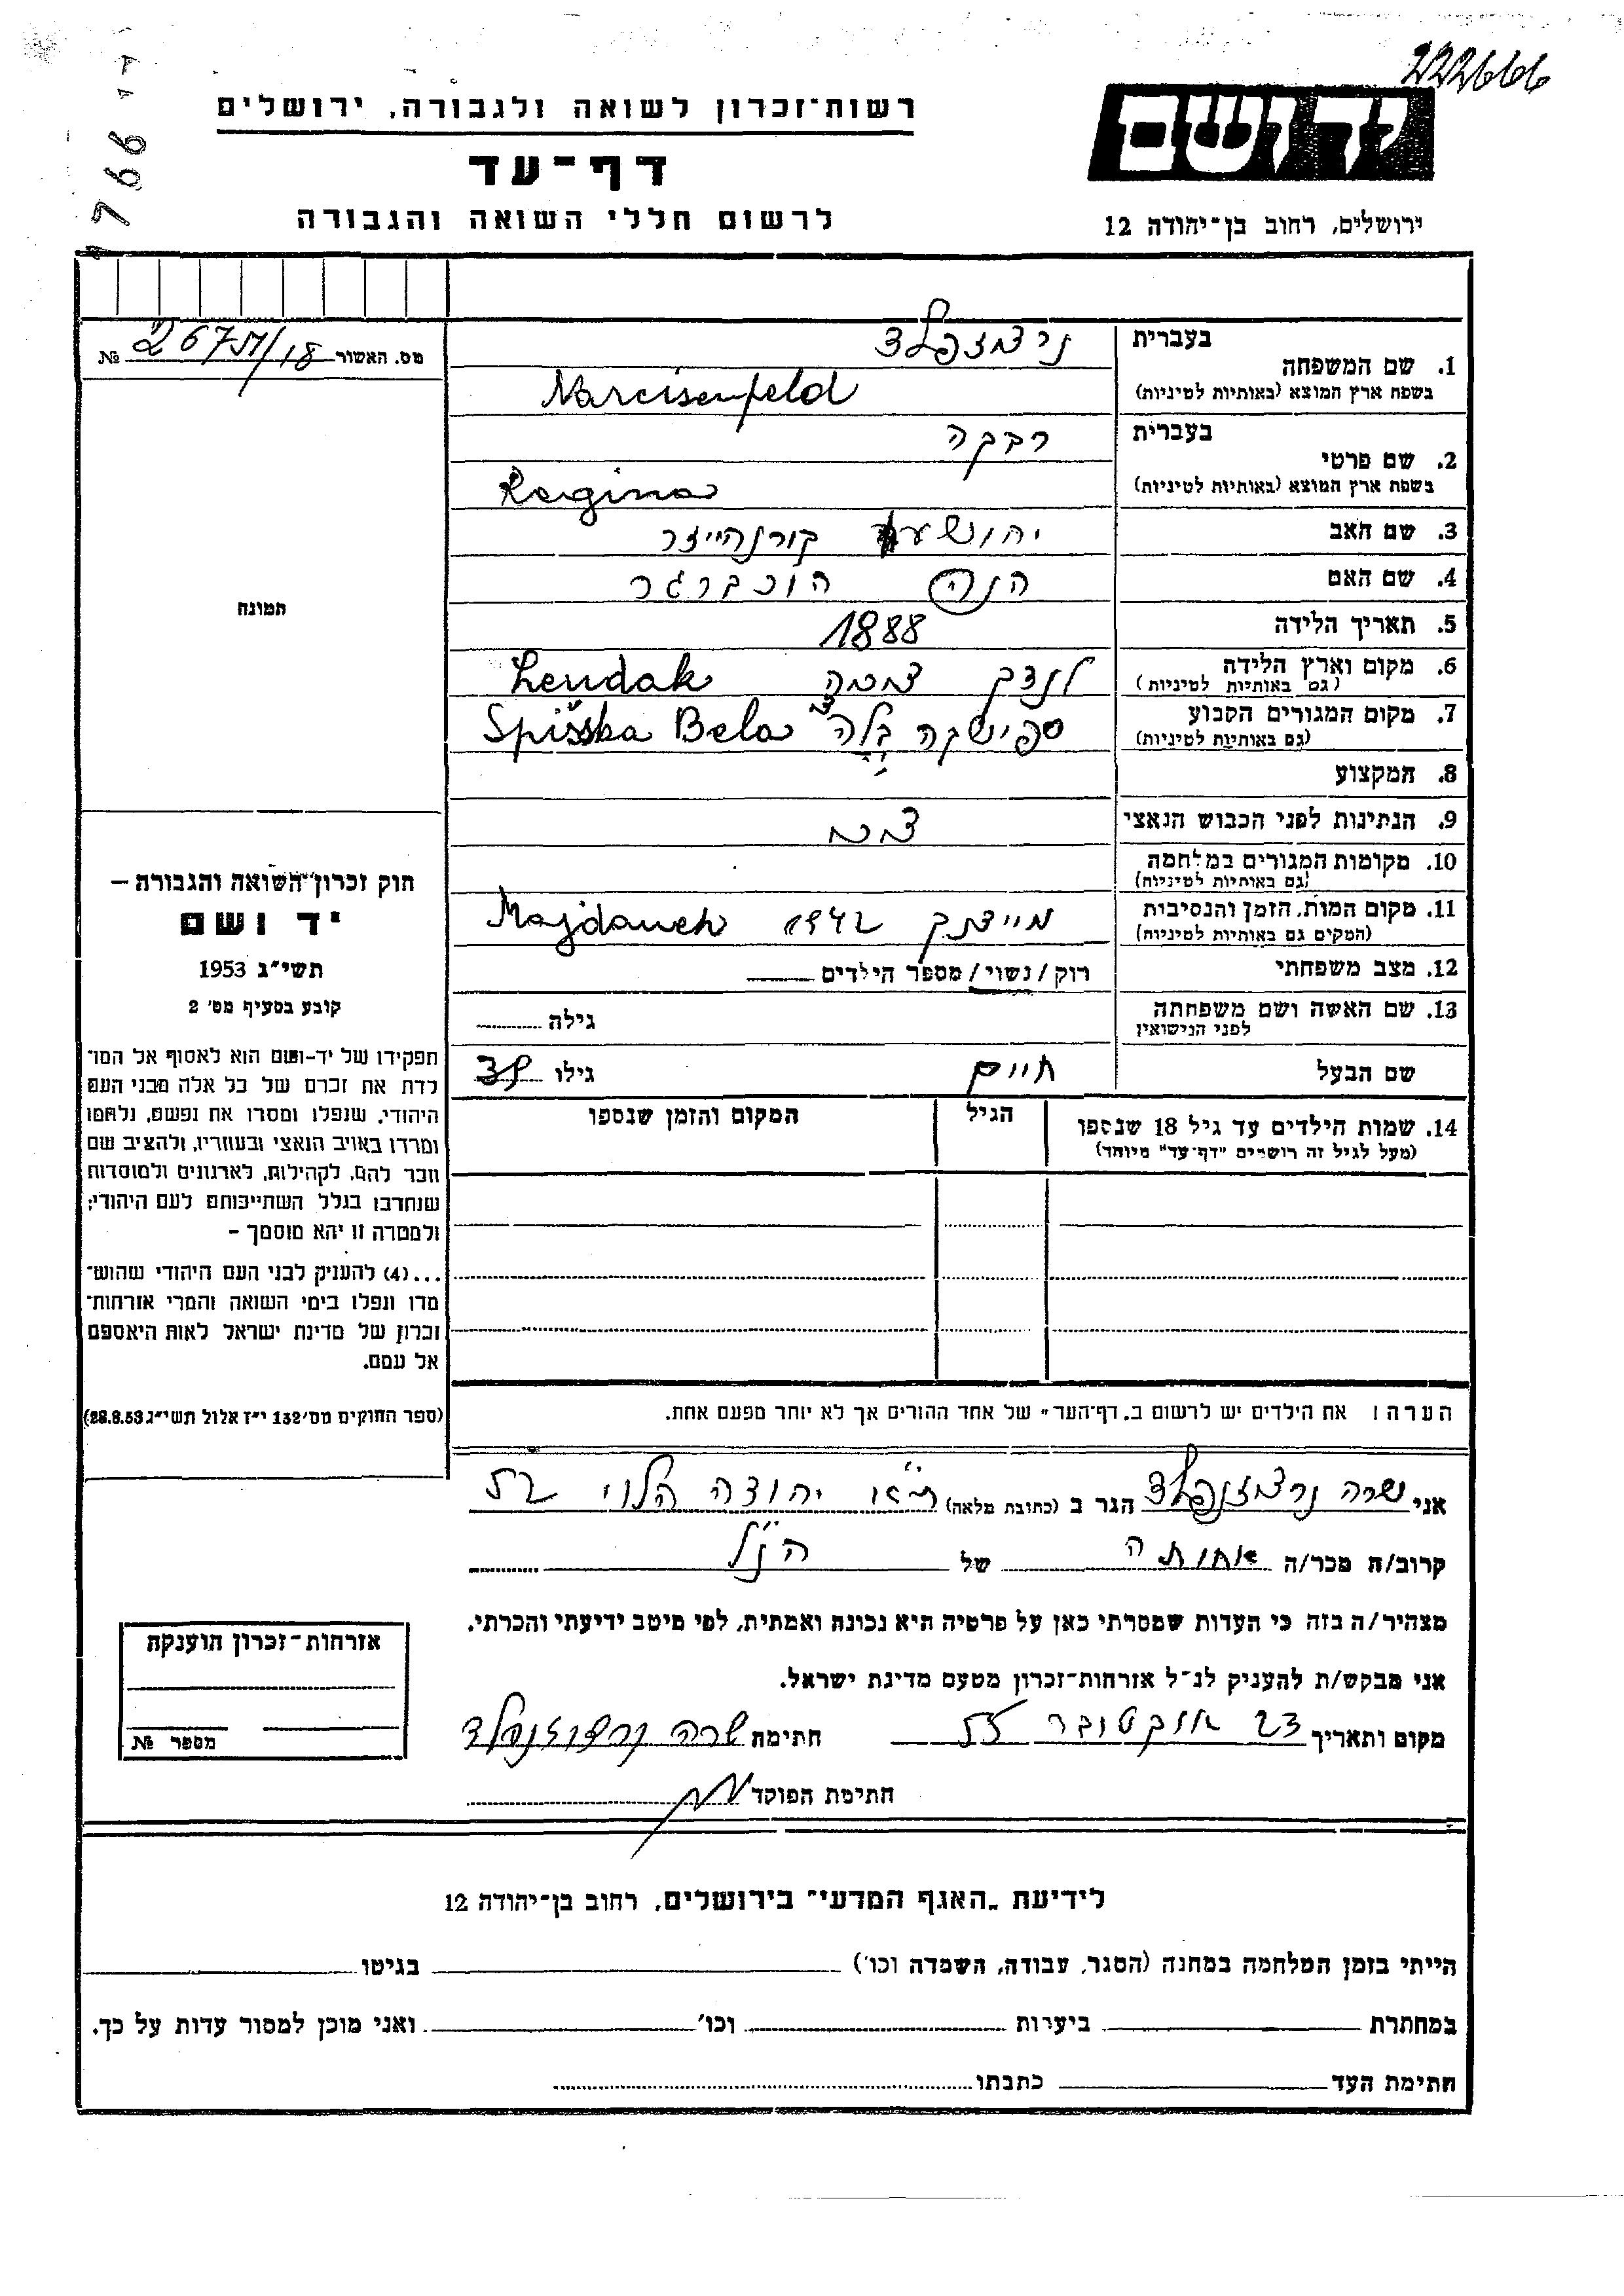 222666
רשות־זכרון לשואה ולגבורה, ירושלים
יד ושם
דף־עד
לרשום חללי השואה והגבורה
ירושלים, רחוב בן־יהודה 12
מס. האשור № 267
בעברית
1. שם המשפחה
בשפת ארץ המוצא (באותיות לטיניות)
Narcisenfeld
בעברית רבקה
2. שם פרטי
בשפת ארץ המוצא (באותיות לטיניות)
Regina
3. שם האב יהושע קורנהייזר
4. שם האם הנה הוכברגר
5. תאריך הלידה 1888
6. מקום וארץ הלידה לנדק צ'כיה Lendak
(גם באותיות לטיניות)
7. מקום המגורים הקבוע ספישקה בלה Spišska Bela
(גם באותיות לטיניות)
8. המקצוע
9. הנתינות לפני הכבוש הנאצי
10. מקומות המגורים במלחמה
(גם באותיות לטיניות)
11. מקום המות, הזמן והנסיבות 1942 Majdanek
(המקום גם באותיות לטיניות)
12. מצב משפחתי רוק / נשוי / מספר הילדים
13. שם האשה ושם משפחתה גילה
לפני הנישואין
שם הבעל חיים גילו
14. שמות הילדים עד גיל 18 שנספו הגיל המקום והזמן שנספו
(מעל לגיל זה רושמים "דף־עד" מיוחד)
תמונה
חוק זכרון השואה והגבורה —
יד ושם
תשי"ג 1953
קובע בסעיף מס' 2
תפקידו של יד-ושם הוא לאסוף אל המו־
לדת את זכרם של כל אלה מבני העם
היהודי, שנפלו ומסרו את נפשם, נלחמו
ומרדו באויב הנאצי ובעוזריו, ולהציב שם
וזכר להם, לקהילות, לארגונים ולמוסדות
שנחרבו בגלל השתייכותם לעם היהודי;
ולמטרה זו יהא מוסמך —
...(4) להעניק לבני העם היהודי שהוש־
מדו ונפלו בימי השואה והמרי אזרחות־
זכרון של מדינת ישראל לאות היאספם
אל עמם.
(ספר החוקים מס' 132 י"ז אלול תשי"ג 28.8.53)
הערה: את הילדים יש לרשום ב„דף־העד" של אחד ההורים אך לא יותר מפעם אחת.
אני שרה נרצזנפלד הגר ב (כתובת מלאה) ת"א יהודה הלוי
קרוב/ה מכר/ה אחותה של הנ"ל
מצהיר/ה בזה כי העדות שמסרתי כאן על פרטיה היא נכונה ואמתית, לפי מיטב ידיעתי והכרתי.
אני מבקש/ת להעניק לנ"ל אזרחות־זכרון מטעם מדינת ישראל.
מקום ותאריך 23 אוקטובר 55 חתימה שרה נרצזנפלד
חתימת הפוקד
אזרחות־זכרון הוענקה
מספר №
לידיעת „האגף המדעי" בירושלים, רחוב בן־יהודה 12
הייתי בזמן המלחמה במחנה (הסגר, עבודה, השמדה וכו') בגיטו
במחתרת ביערות וכו' ואני מוכן למסור עדות על כך.
חתימת העד כתבתו